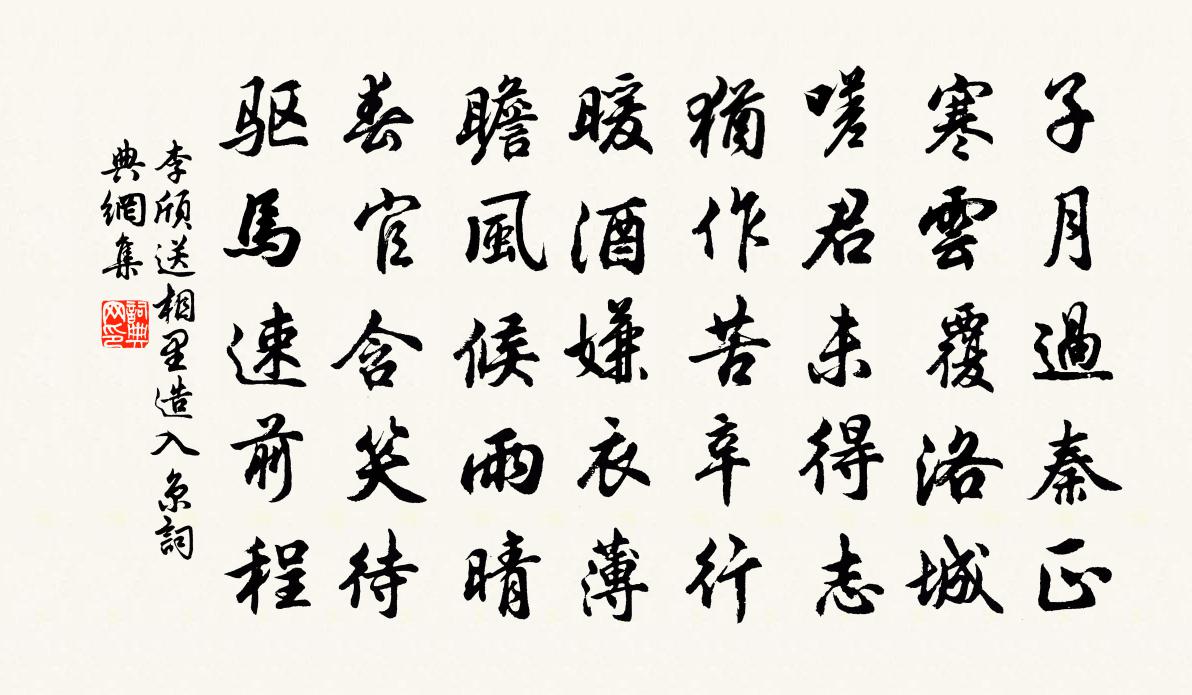 子月過秦正
寒雲覆洛城
嗟君未得志
猶作苦辛行
暖酒嫌衣薄
瞻風候雨晴
春官含笑待
驱馬速前程
李頎送相里造入京詞
典網集
詞典网印